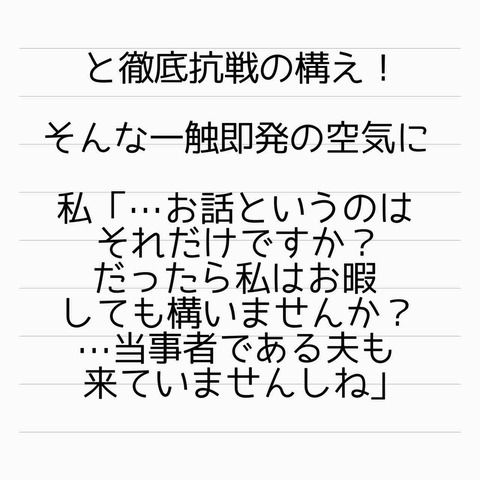 と徹底抗戦の構え！
そんな一触即発の空気に
私「…お話というのは
それだけですか？
だったら私はお暇
しても構いませんか？
…当事者である夫も
来ていませんしね」